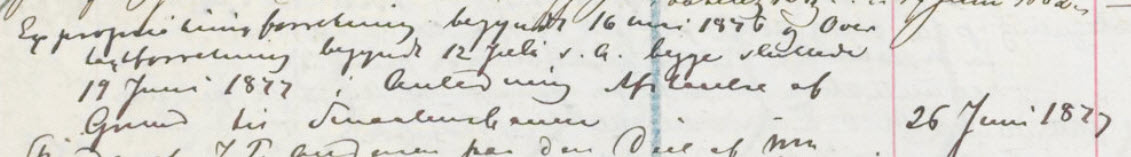 Expropriationsforretning begyndt 16 mai 1876 og Over
taxtforretning begyndt 12 Juli s. A. begge sluttede
19 Juni 1877 i Anledning Afstaaelse af
Grund til Smaalensbanen 26 Juni 1877
af den Deel af